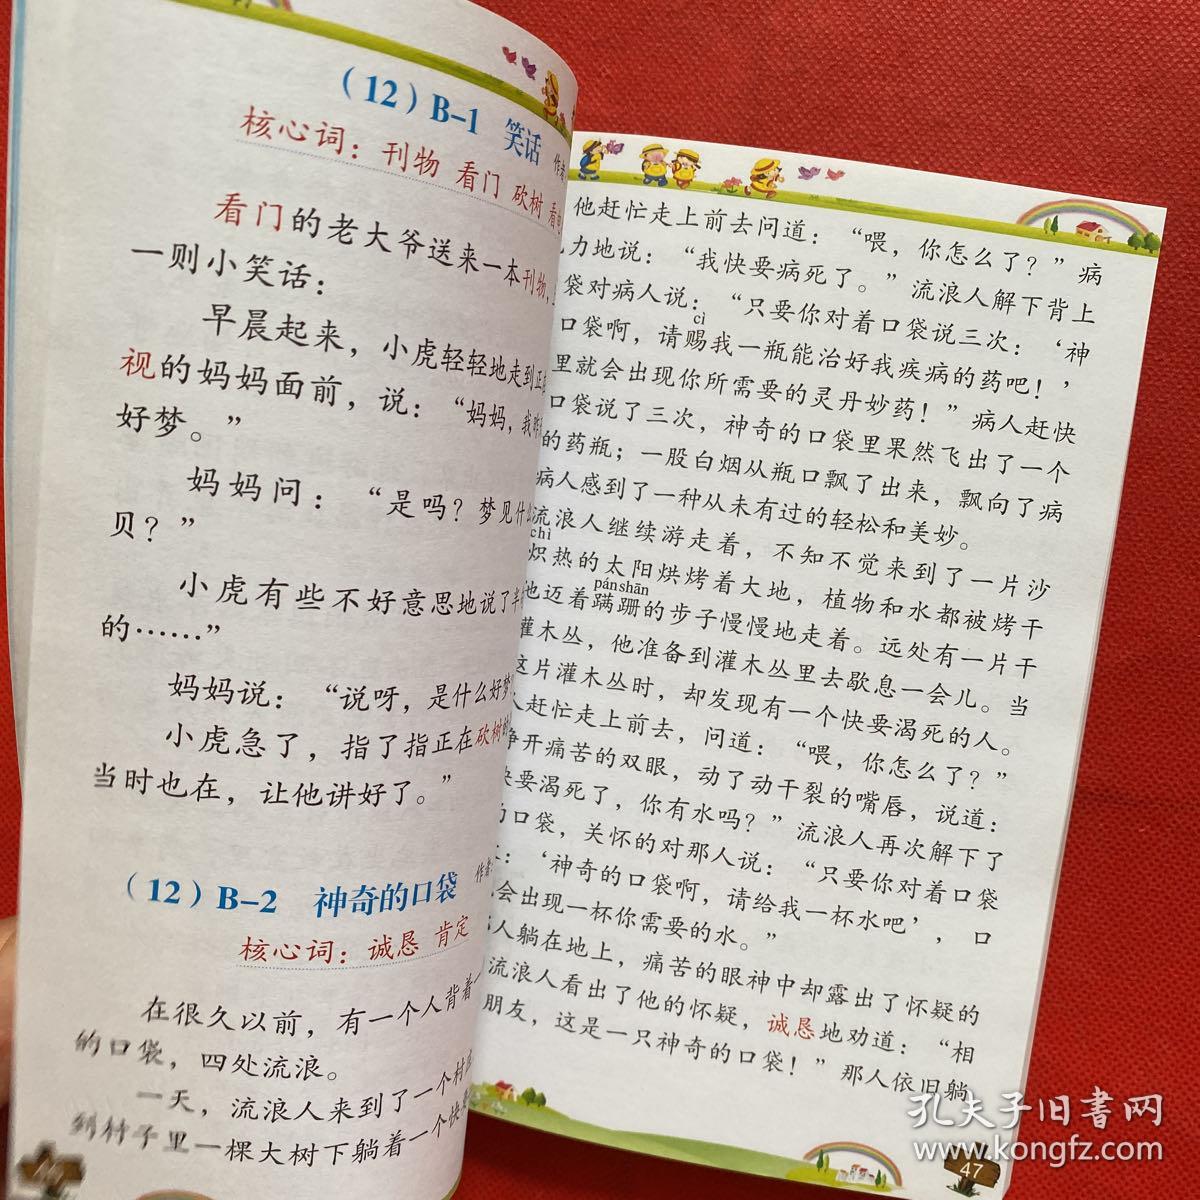 （12）B-1 笑话
核心词：刊物 看门 砍树
看门的老大爷送来一本刊物，
一则小笑话：
早晨起来，小虎轻轻地走到正
视的妈妈面前，说：“妈妈，我昨
好梦。”
妈妈问：“是吗？梦见什
贝？”
小虎有些不好意思地说了半
的……”
妈妈说：“说呀，是什么好梦
小虎急了，指了指正在砍树
当时也在，让他讲好了。”
（12）B-2 神奇的口袋
作者：
核心词：诚恳 肯定
在很久以前，有一个人背着一
的口袋，四处流浪。
一天，流浪人来到了一个村
到村子里一棵大树下躺着一个快
他赶忙走上前去问道：“喂，你怎么了？”病
力地说：“我快要病死了。”流浪人解下背上
袋对病人说：“只要你对着口袋说三次：‘神
cì
口袋啊，请赐我一瓶能治好我疾病的药吧！’
里就会出现你所需要的灵丹妙药！”病人赶快
口袋说了三次，神奇的口袋里果然飞出了一个
的药瓶；一股白烟从瓶口飘了出来，飘向了病
病人感到了一种从未有过的轻松和美妙。
流浪人继续游走着，不知不觉来到了一片沙
chì
炽热的太阳烘烤着大地，植物和水都被烤干
pánshān
他迈着蹒跚的步子慢慢地走着。远处有一片干
灌木丛，他准备到灌木丛里去歇息一会儿。当
这片灌木丛时，却发现有一个快要渴死的人。
人赶忙走上前去，问道：“喂，你怎么了？”
睁开痛苦的双眼，动了动干裂的嘴唇，说道：
快要渴死了，你有水吗？”流浪人再次解下了
的口袋，关怀的对那人说：“只要你对着口袋
：‘神奇的口袋啊，请给我一杯水吧’，口
会出现一杯你需要的水。”
那人躺在地上，痛苦的眼神中却露出了怀疑的
流浪人看出了他的怀疑，诚恳地劝道：“相
朋友，这是一只神奇的口袋！”那人依旧躺
47
孔夫子旧书网
www.kongfz.com